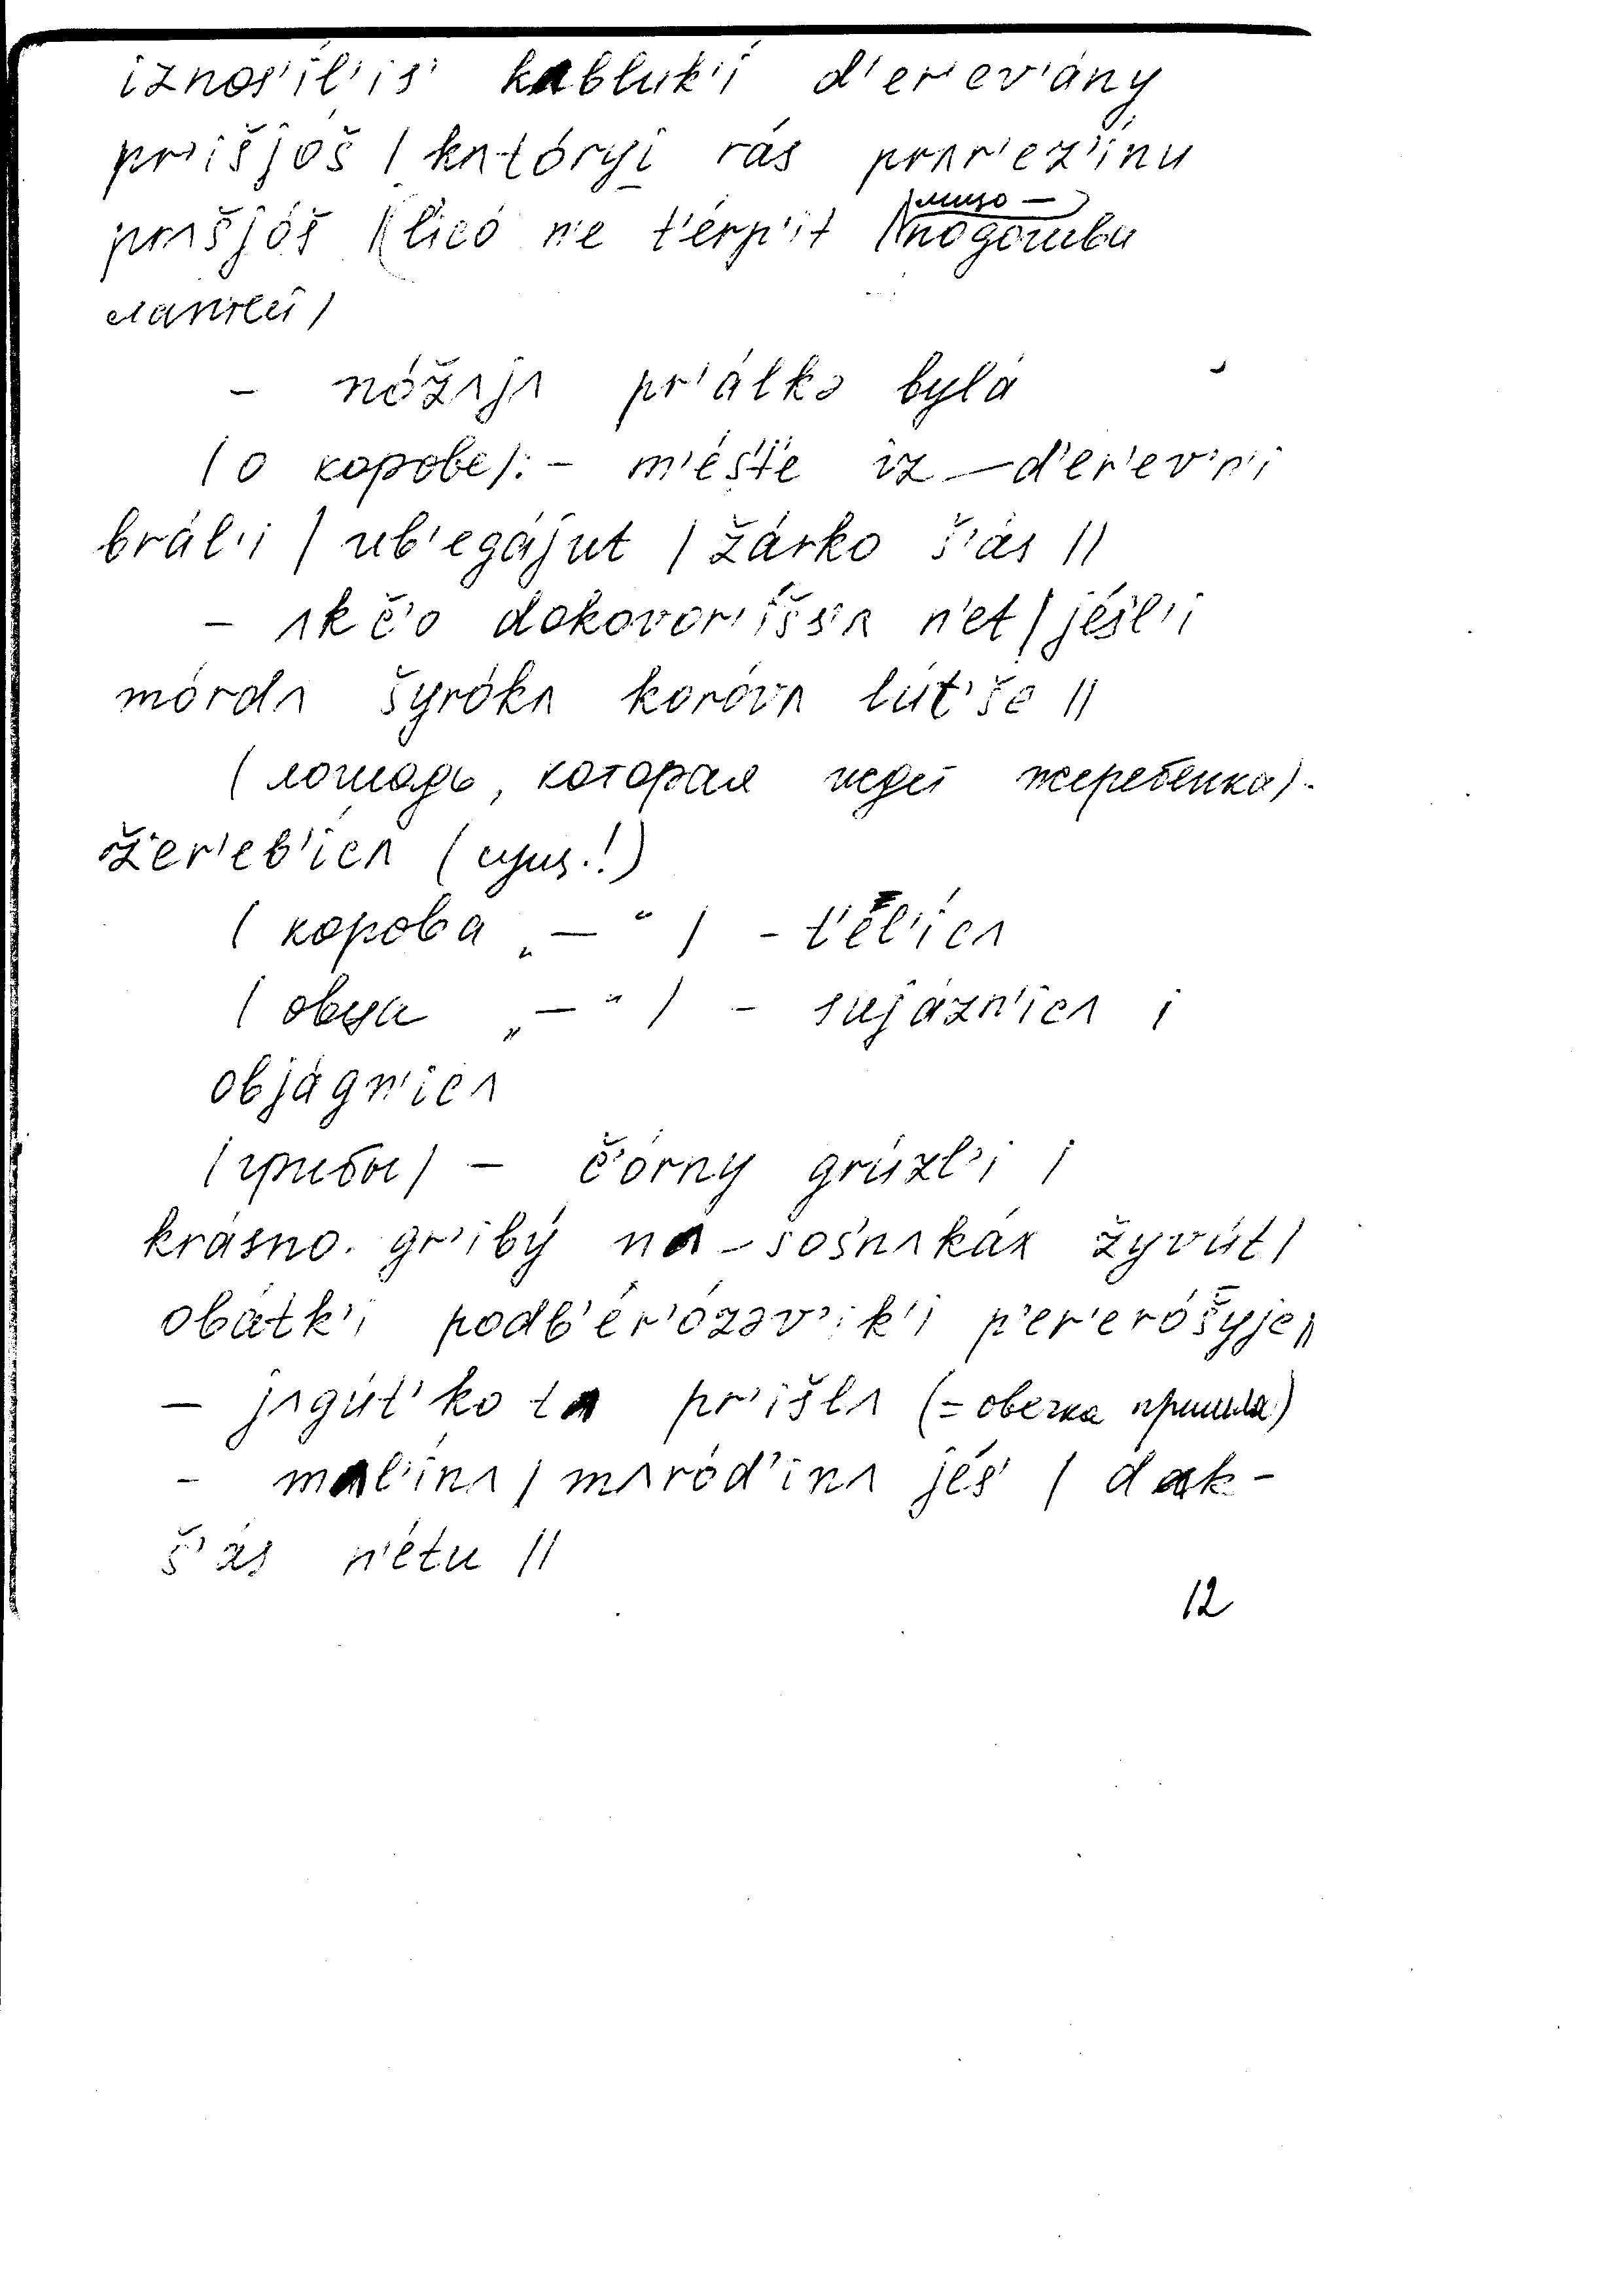 iznos'íl'is' kʌbluk'í d'er'ev'ány
pr'išjóš / kʌtóryi̯ rás prʌr'ez'ínu
prʌšjóš / (l'icó n'e t'érp'it (лицо —) подошвы
лаптей)
– nóžʌjʌ pr'álkə bylá
(о корове): – m'és't'e iz‿d'er'ev'n'i
brál'i / ub'egájut / žárko š'ás //
– ʌk č'o dokovor'íšs'ʌ n'et / jésl'i
mórdʌ šyrókʌ koróvʌ lút'še //
(лошадь, которая ждет жеребенка) –
žer'eb'icʌ (сущ.!)
(корова „—“) – t'el'ícʌ
(овца „—“) – sujázn'icʌ i
objágn'icʌ
(грибы) – č'órny grúzl'i i
krásno. gr'ibý nʌ‿sos'nʌkáx žyvút /
obátk'i podb'er'ózəv'ik'i p'er'eróšyje //
– jʌgút'ko tʌ pr'išlʌ (= овечка пришла)
– mʌl'ínʌ / mʌród'inʌ jés' / dʌk –
š'ás n'étu //
12